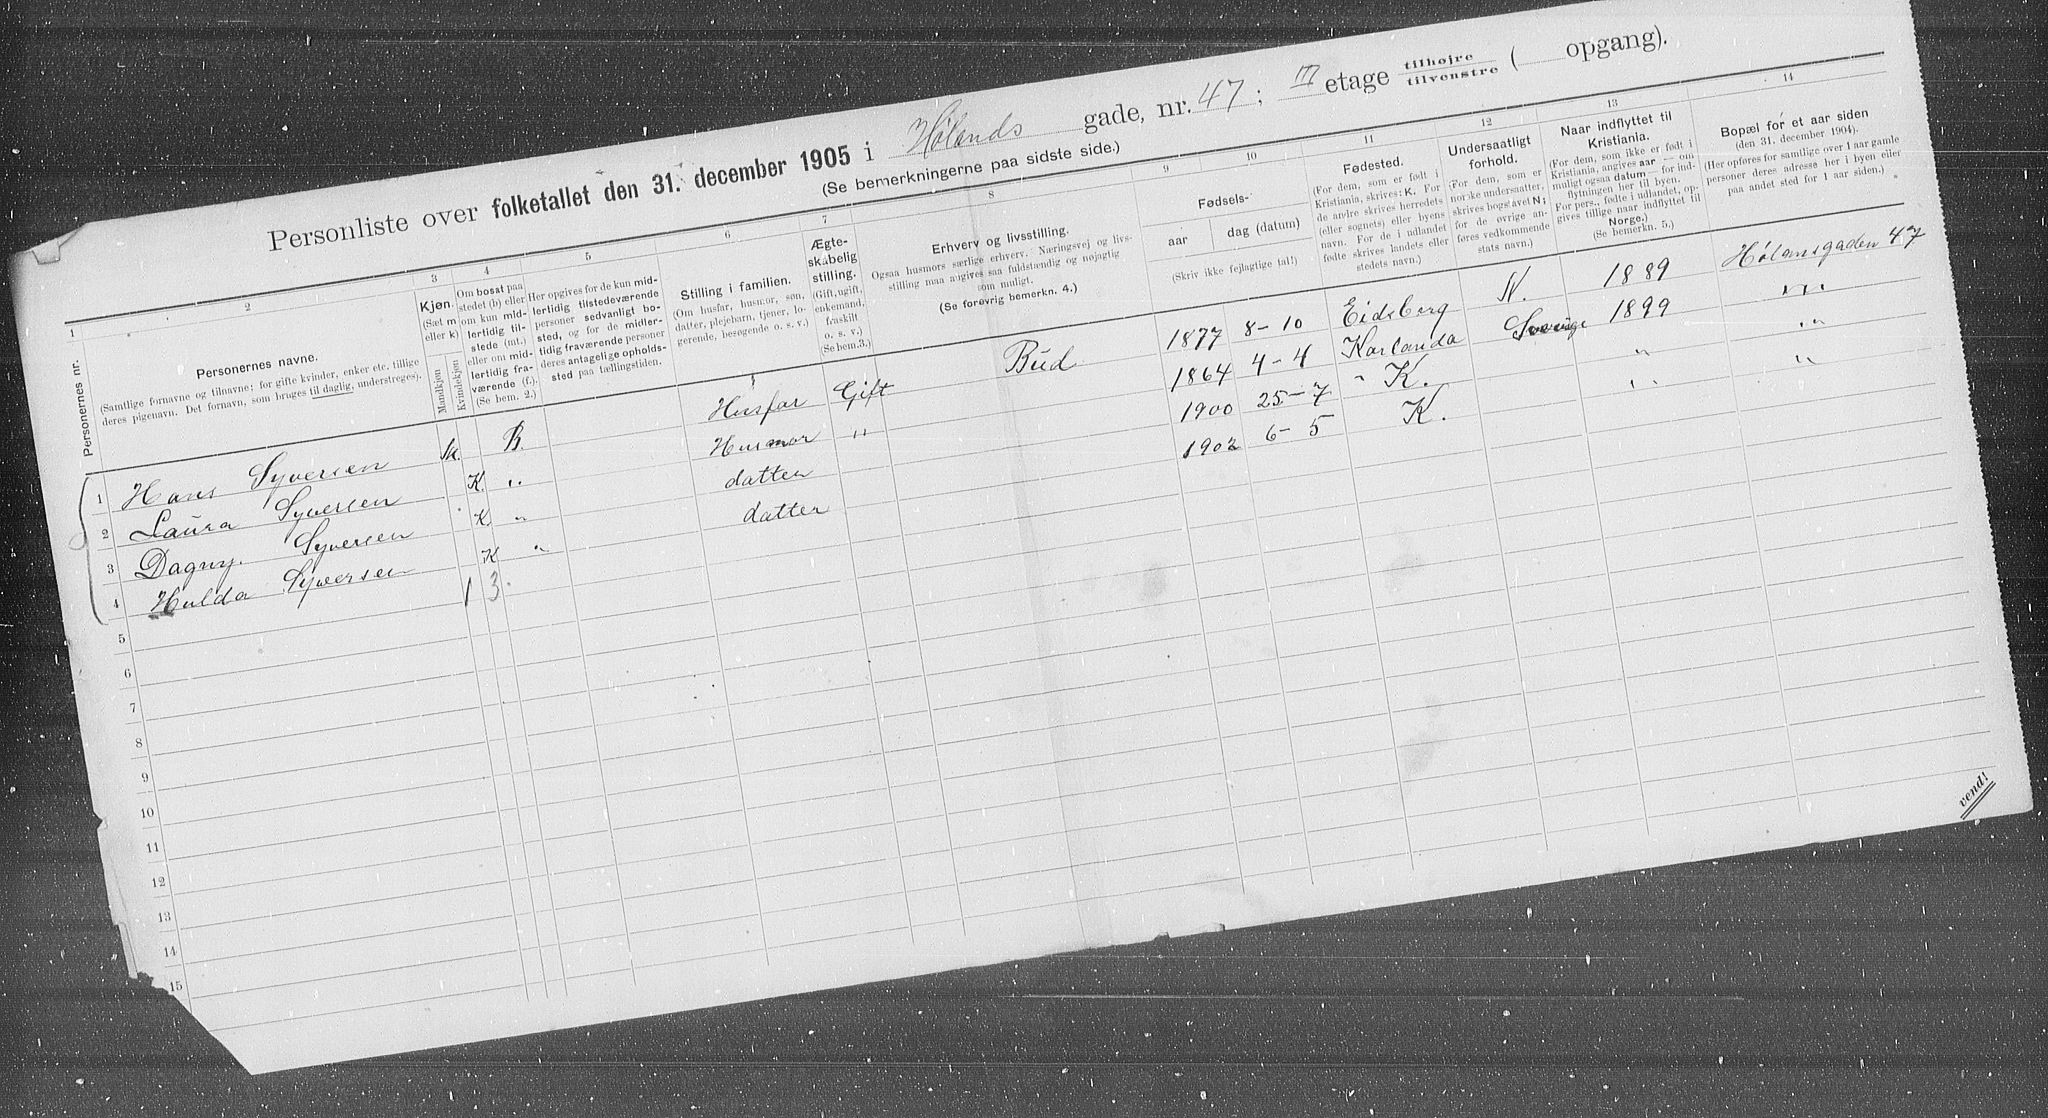 Personliste over folketallet den 31. december 1905 i Hølands gade, nr. 47; III etage tilhøjre tilvenstre ( opgang).
(Se bemerkningerne paa sidste side.)
1 2 3 4 5 6 7 8 9 10 11 12 13 14
Personernes nr.
Personernes navne.
(Samtlige fornavne og tilnavne; for gifte kvinder, enker etc. tillige
deres pigenavn. Det fornavn, som bruges til daglig, understreges).
Kjøn.
(Sæt m
eller k)
Mandkjøn
Kvindekjøn
Om bosat paa
stedet (b) eller
om kun mid-
lertidig til-
stede (mt.)
eller om mid-
lertidig fra-
værende (f.).
(Se bem. 2.)
Her opgives for de kun mid-
lertidig tilstedeværende
personer sedvanligt bo-
sted, og for de midler-
tidig fraværende personer
deres antagelige opholds-
sted paa tællingstiden.
Stilling i familien.
(Om husfar, husmor, søn,
datter, plejebarn, tjener, lo-
gerende, besøgende o. s. v.).
Ægte-
skabelig
stilling.
(Gift, ugift,
enkemand,
fraskilt
o. s. v.)
(Se bem.3.)
Erhverv og livsstilling.
Ogsaa husmors særlige erhverv. Næringsvej og livs-
stilling maa angives saa fuldstændig og nøjagtig
som muligt.
(Se forøvrig bemerkn. 4.)
Fødsels-
aar
dag (datum)
(Skriv ikke fejlagtige tal!)
Fødested.
(For dem, som er født i
Kristiania, skrives: K. For
de andre skrives herredets
(eller sognets) eller byens
navn. For de i udlandet
fødte skrives landets eller
stedets navn.)
Undersaatligt
forhold.
(For dem, som er
norske undersaatter,
skrives bogstavet N;
for de øvrige an-
føres vedkommende
stats navn.)
Naar indflyttet til
Kristiania.
(For dem, som ikke er født i
Kristiania, angives aar — om
muligt ogsaa datum — for ind-
flytningen her til byen.
For pers., fødte i udlandet, op-
gives tillige naar indflyttet til
Norge.)
(Se bemerkn. 5.)
Bopæl for et aar siden
(den 31. december 1904).
(Her opføres for samtlige over 1 aar gamle
personer deres adresse her i byen eller
paa andet sted for 1 aar siden.)
1 Hans Syversen M. B. Husfar Gift Bud 1877 8-10 Eidsberg N. 1889 Hølansgaden 47
2 Laura Syversen K. " Husmor " 1864 4-4 Karlanda Sverige 1899 "
3 Dagny. Syversen K. " datter 1900 25-7 K. " "
4 Hulda Syversen K " datter 1902 6-5 K. " "
1 3
5
6
7
8
9
10
11
12
13
14
15
vend!